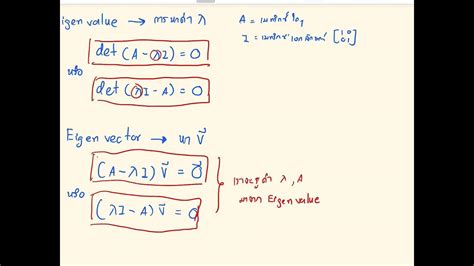 Eigen value → การหาค่า λ
A = เมทริกซ์ใดๆ
I = เมทริกซ์เอกลักษณ์ [1 0
0 1]
det (A - λI) = 0
หรือ
det (λI - A) = 0
Eigen vector → หา V⃗
(A - λI) V⃗ = 0⃗
หรือ
(λI - A) V⃗ = 0
λ, A
Eigen value